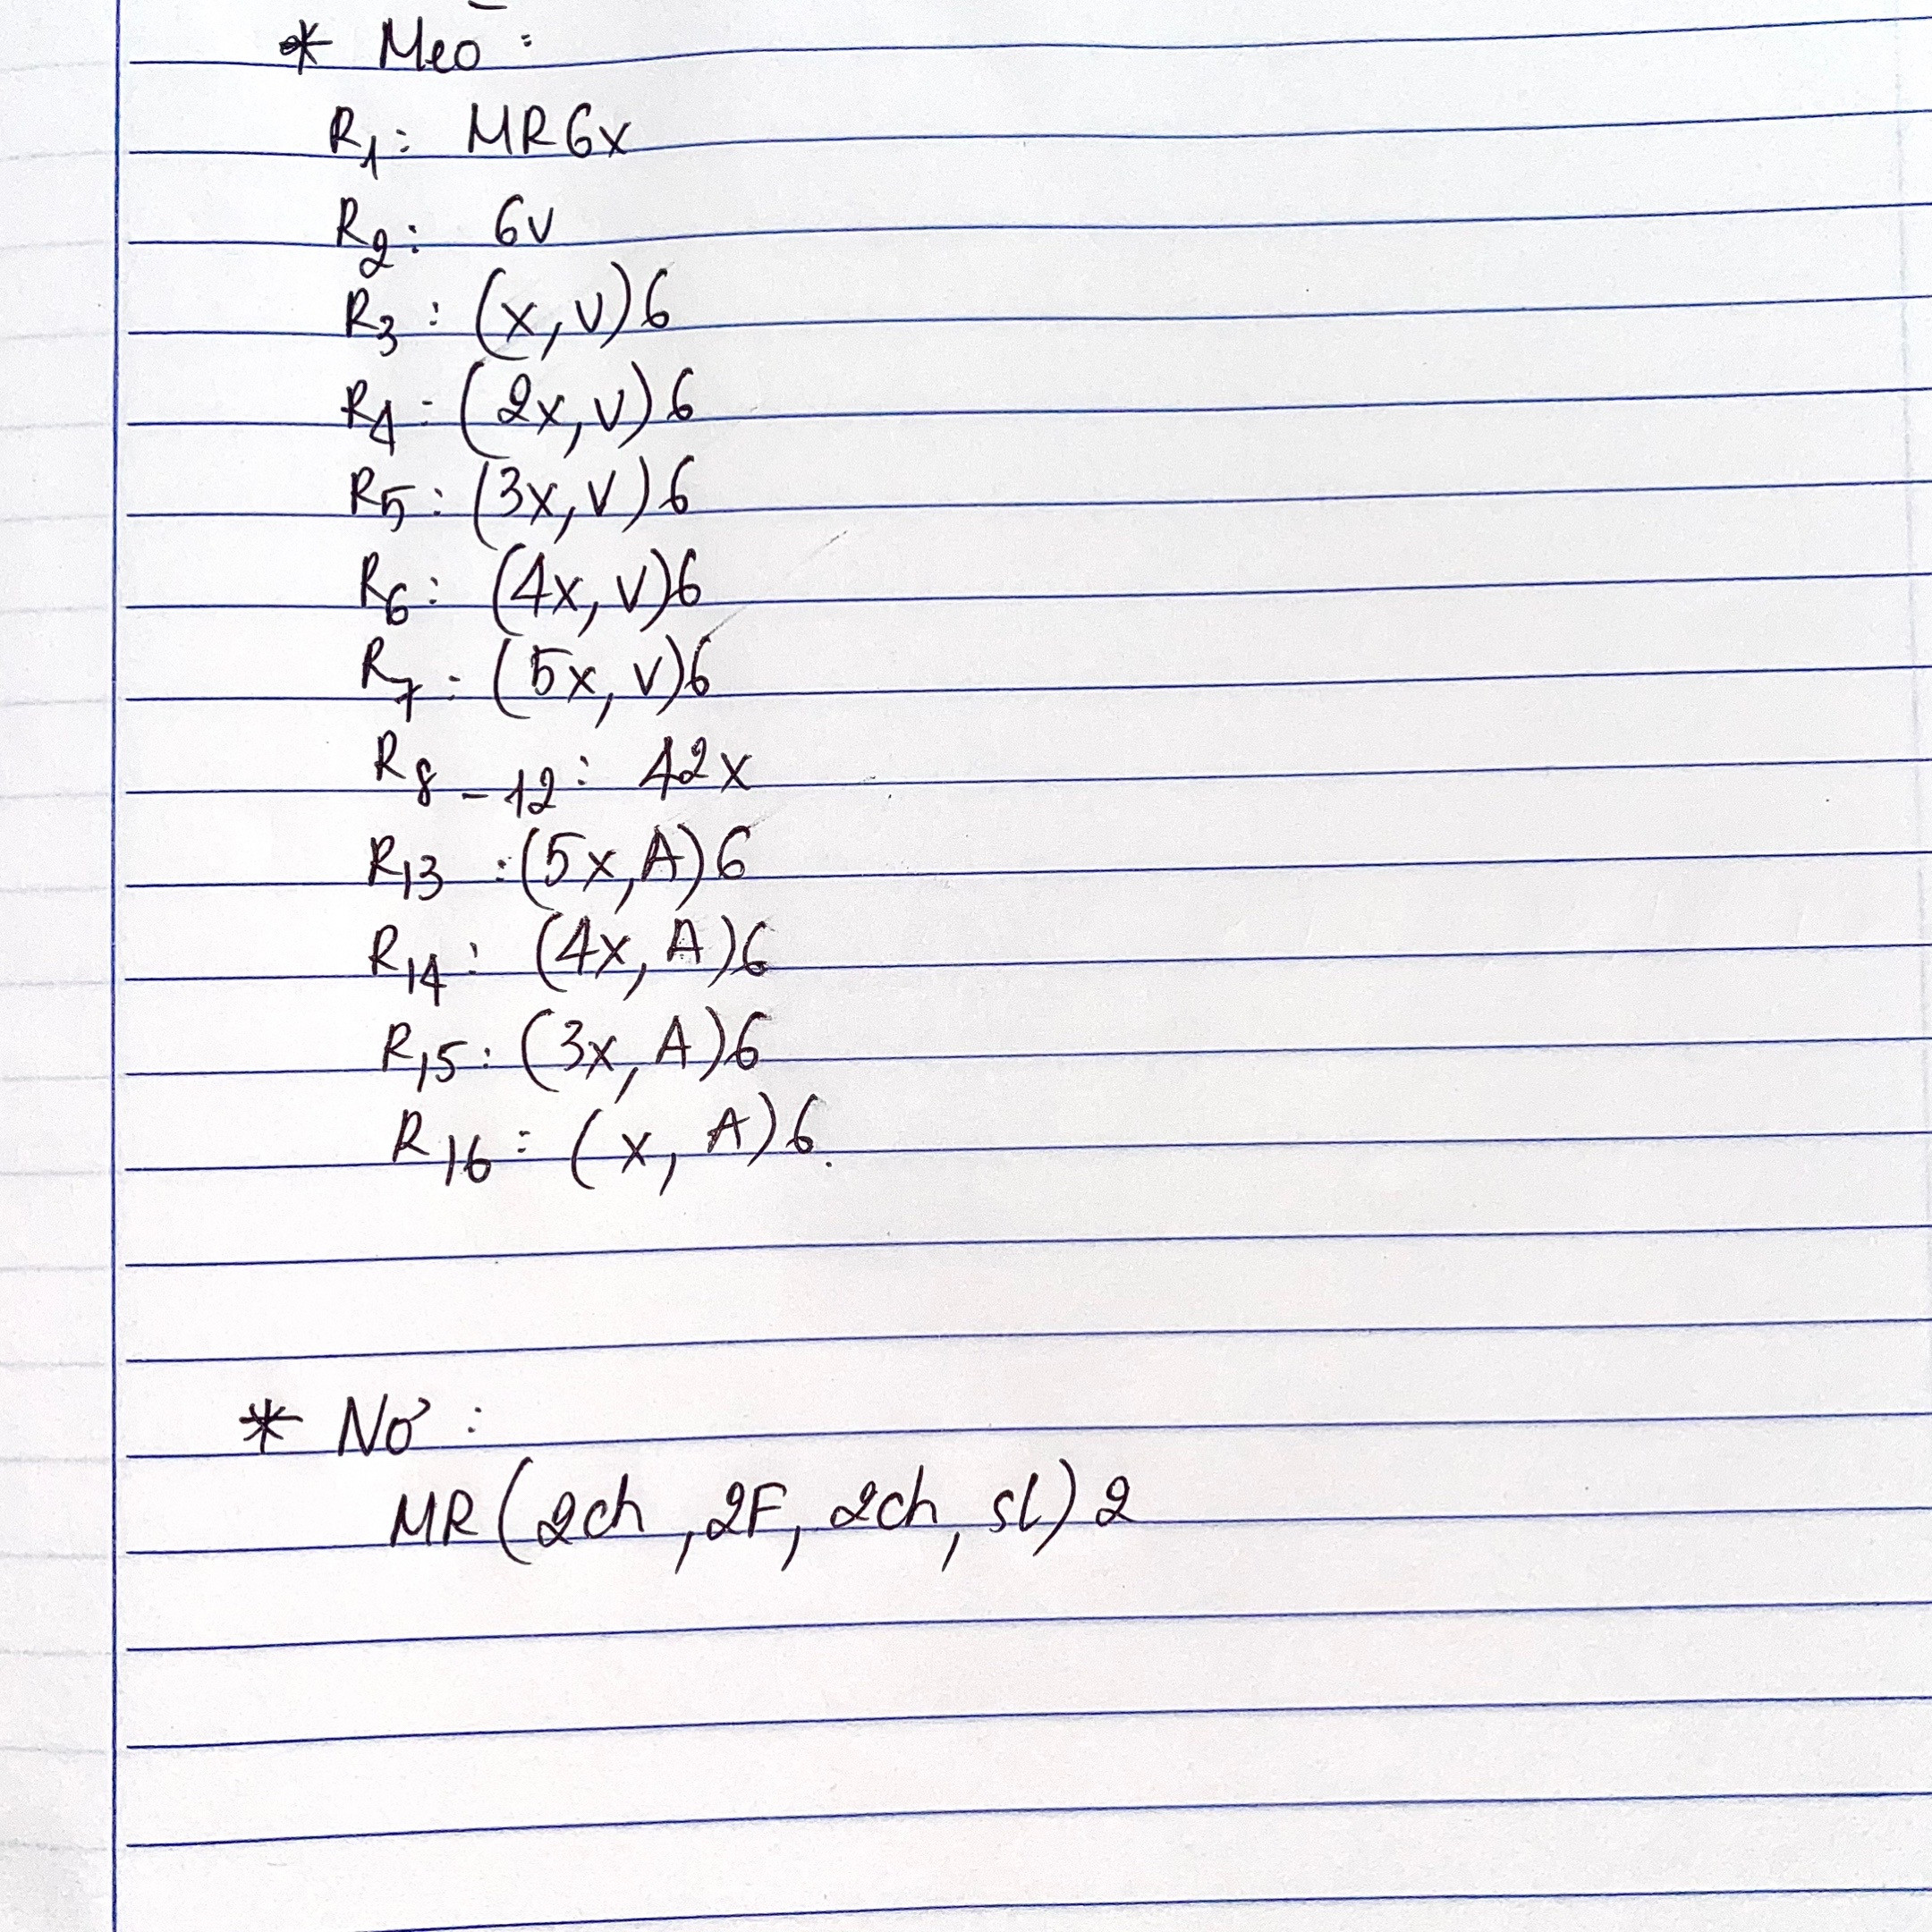 * Mèo :
R1: MR6x
R2: 6v
R3: (x, v)6
R4: (2x, v)6
R5: (3x, v)6
R6: (4x, v)6
R7: (5x, v)6
R8-12: 42x
R13: (5x, A)6
R14: (4x, A)6
R15: (3x, A)6
R16: (x, A)6.
* Nơ :
MR(2ch, 2F, 2ch, sl)2